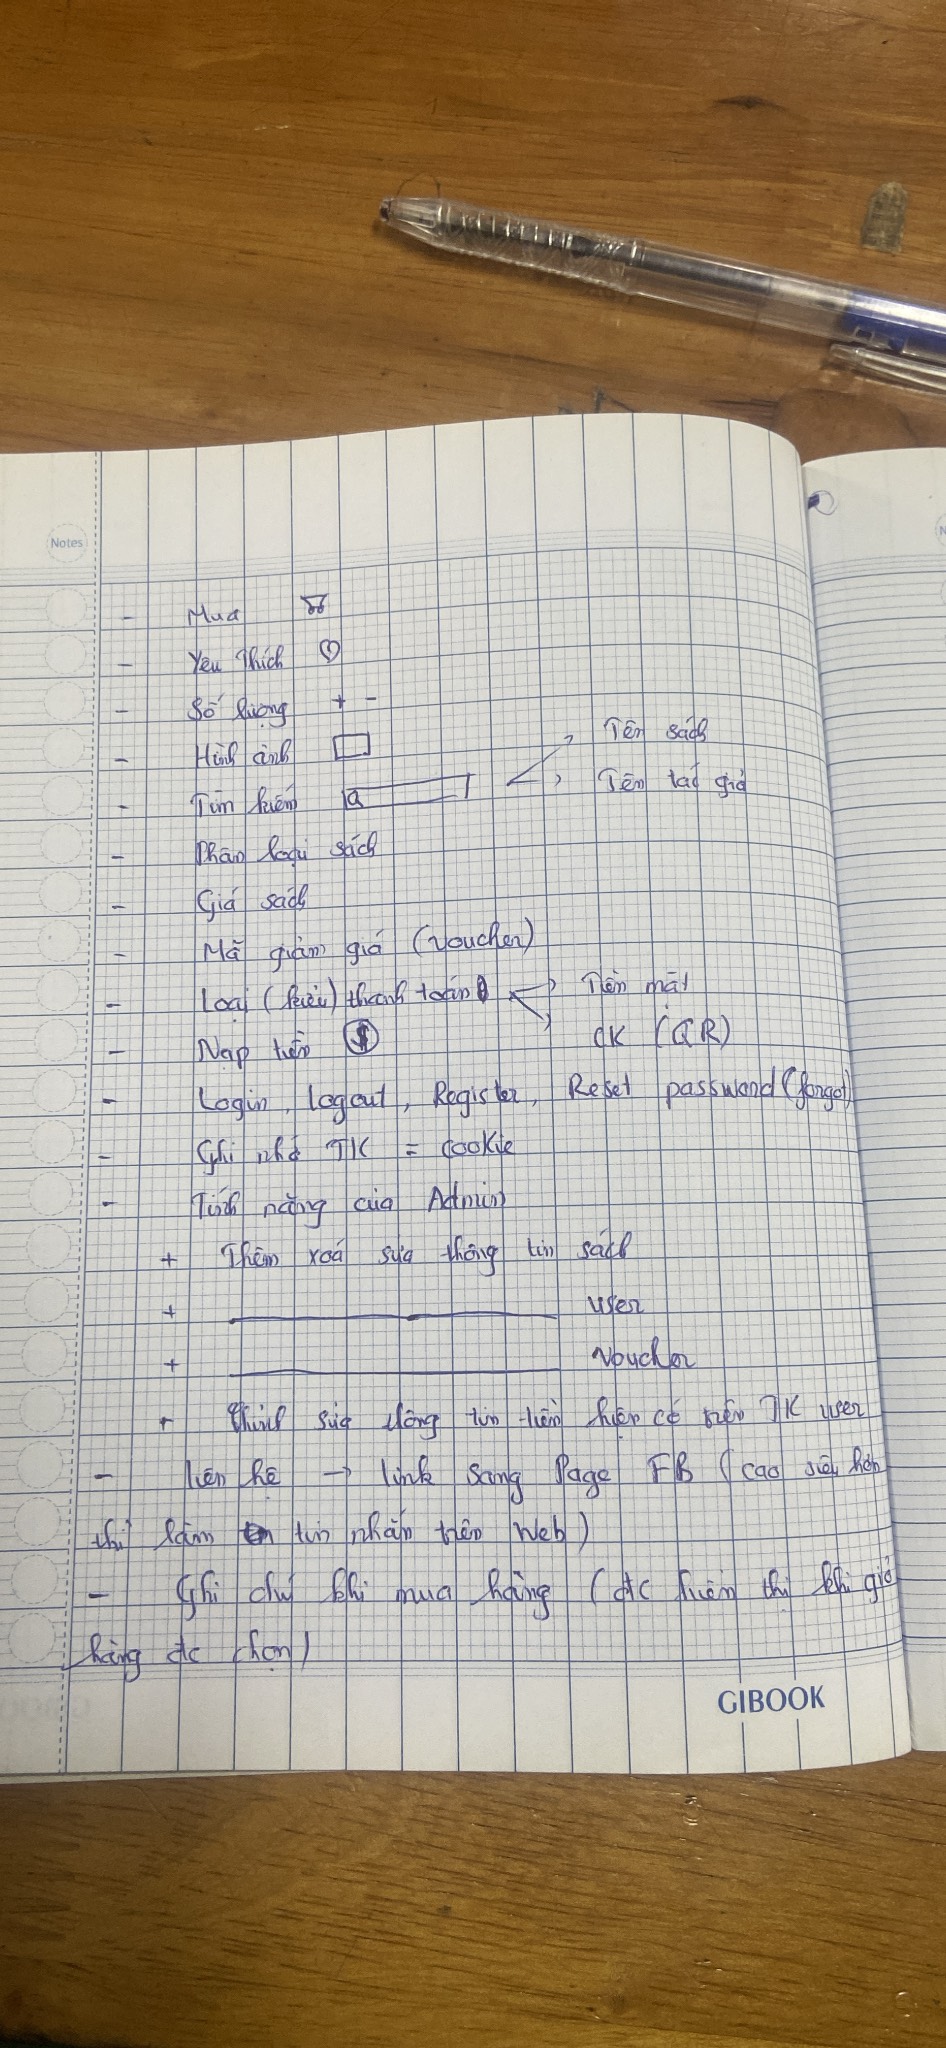 Notes
- Mua
- Yêu Thích
- Số lượng + -
- Hình ảnh
Tên sách
- Tìm kiếm
Tên tác giả
- Phân loại sách
- Giá sách
- Mã giảm giá (Voucher)
- Loại (kiểu) thanh toán → Tiền mặt
CK (QR)
- Nạp tiền $
- Login, logout, Register, Reset password (forgot)
- Ghi nhớ TK = cookie
- Tính năng của Admin
+ Thêm xoá sửa thông tin sách
+ ——— user
+ ——— Voucher
+ chỉnh sửa thông tin tiền hiện có trên TK user
- liên hệ → link sang Page FB (cao siêu hơn
thì làm tin nhắn trên Web)
- Ghi chú khi mua hàng (đc hiển thị khi giỏ
hàng đc chọn)
GIBOOK